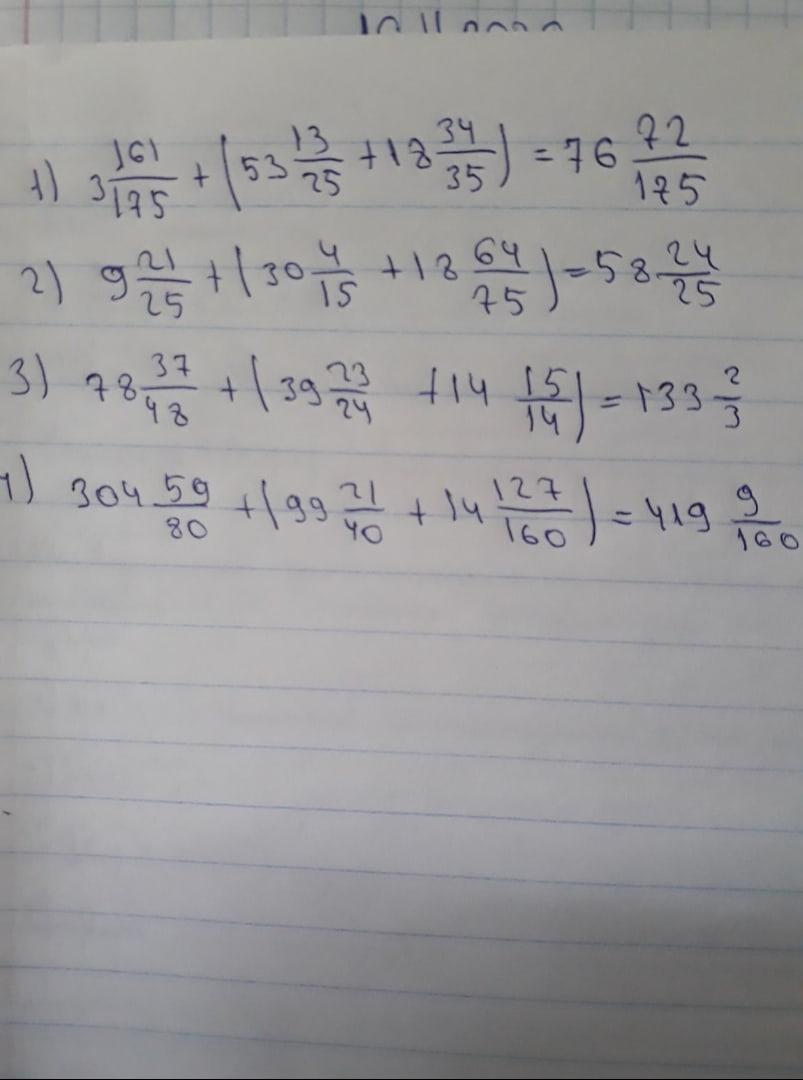 1) 3 161/175 + (53 13/25 + 18 34/35) = 76 72/175
2) 9 21/25 + (30 4/15 + 18 64/75) = 58 24/25
3) 78 37/48 + (39 23/24 + 14 15/14) = 133 2/3
4) 304 59/80 + (99 21/40 + 14 127/160) = 419 9/160